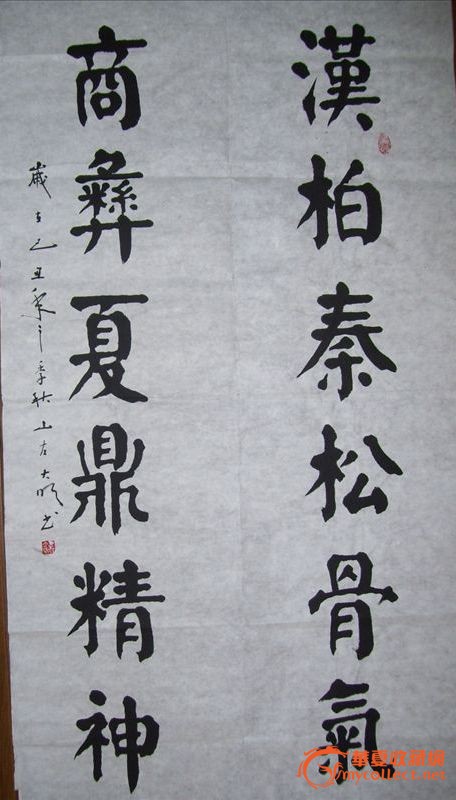 漢柏秦松骨氣
商彝夏鼎精神
歲在己丑年之季秋山左大明書
華夏收藏網
mycollect.net